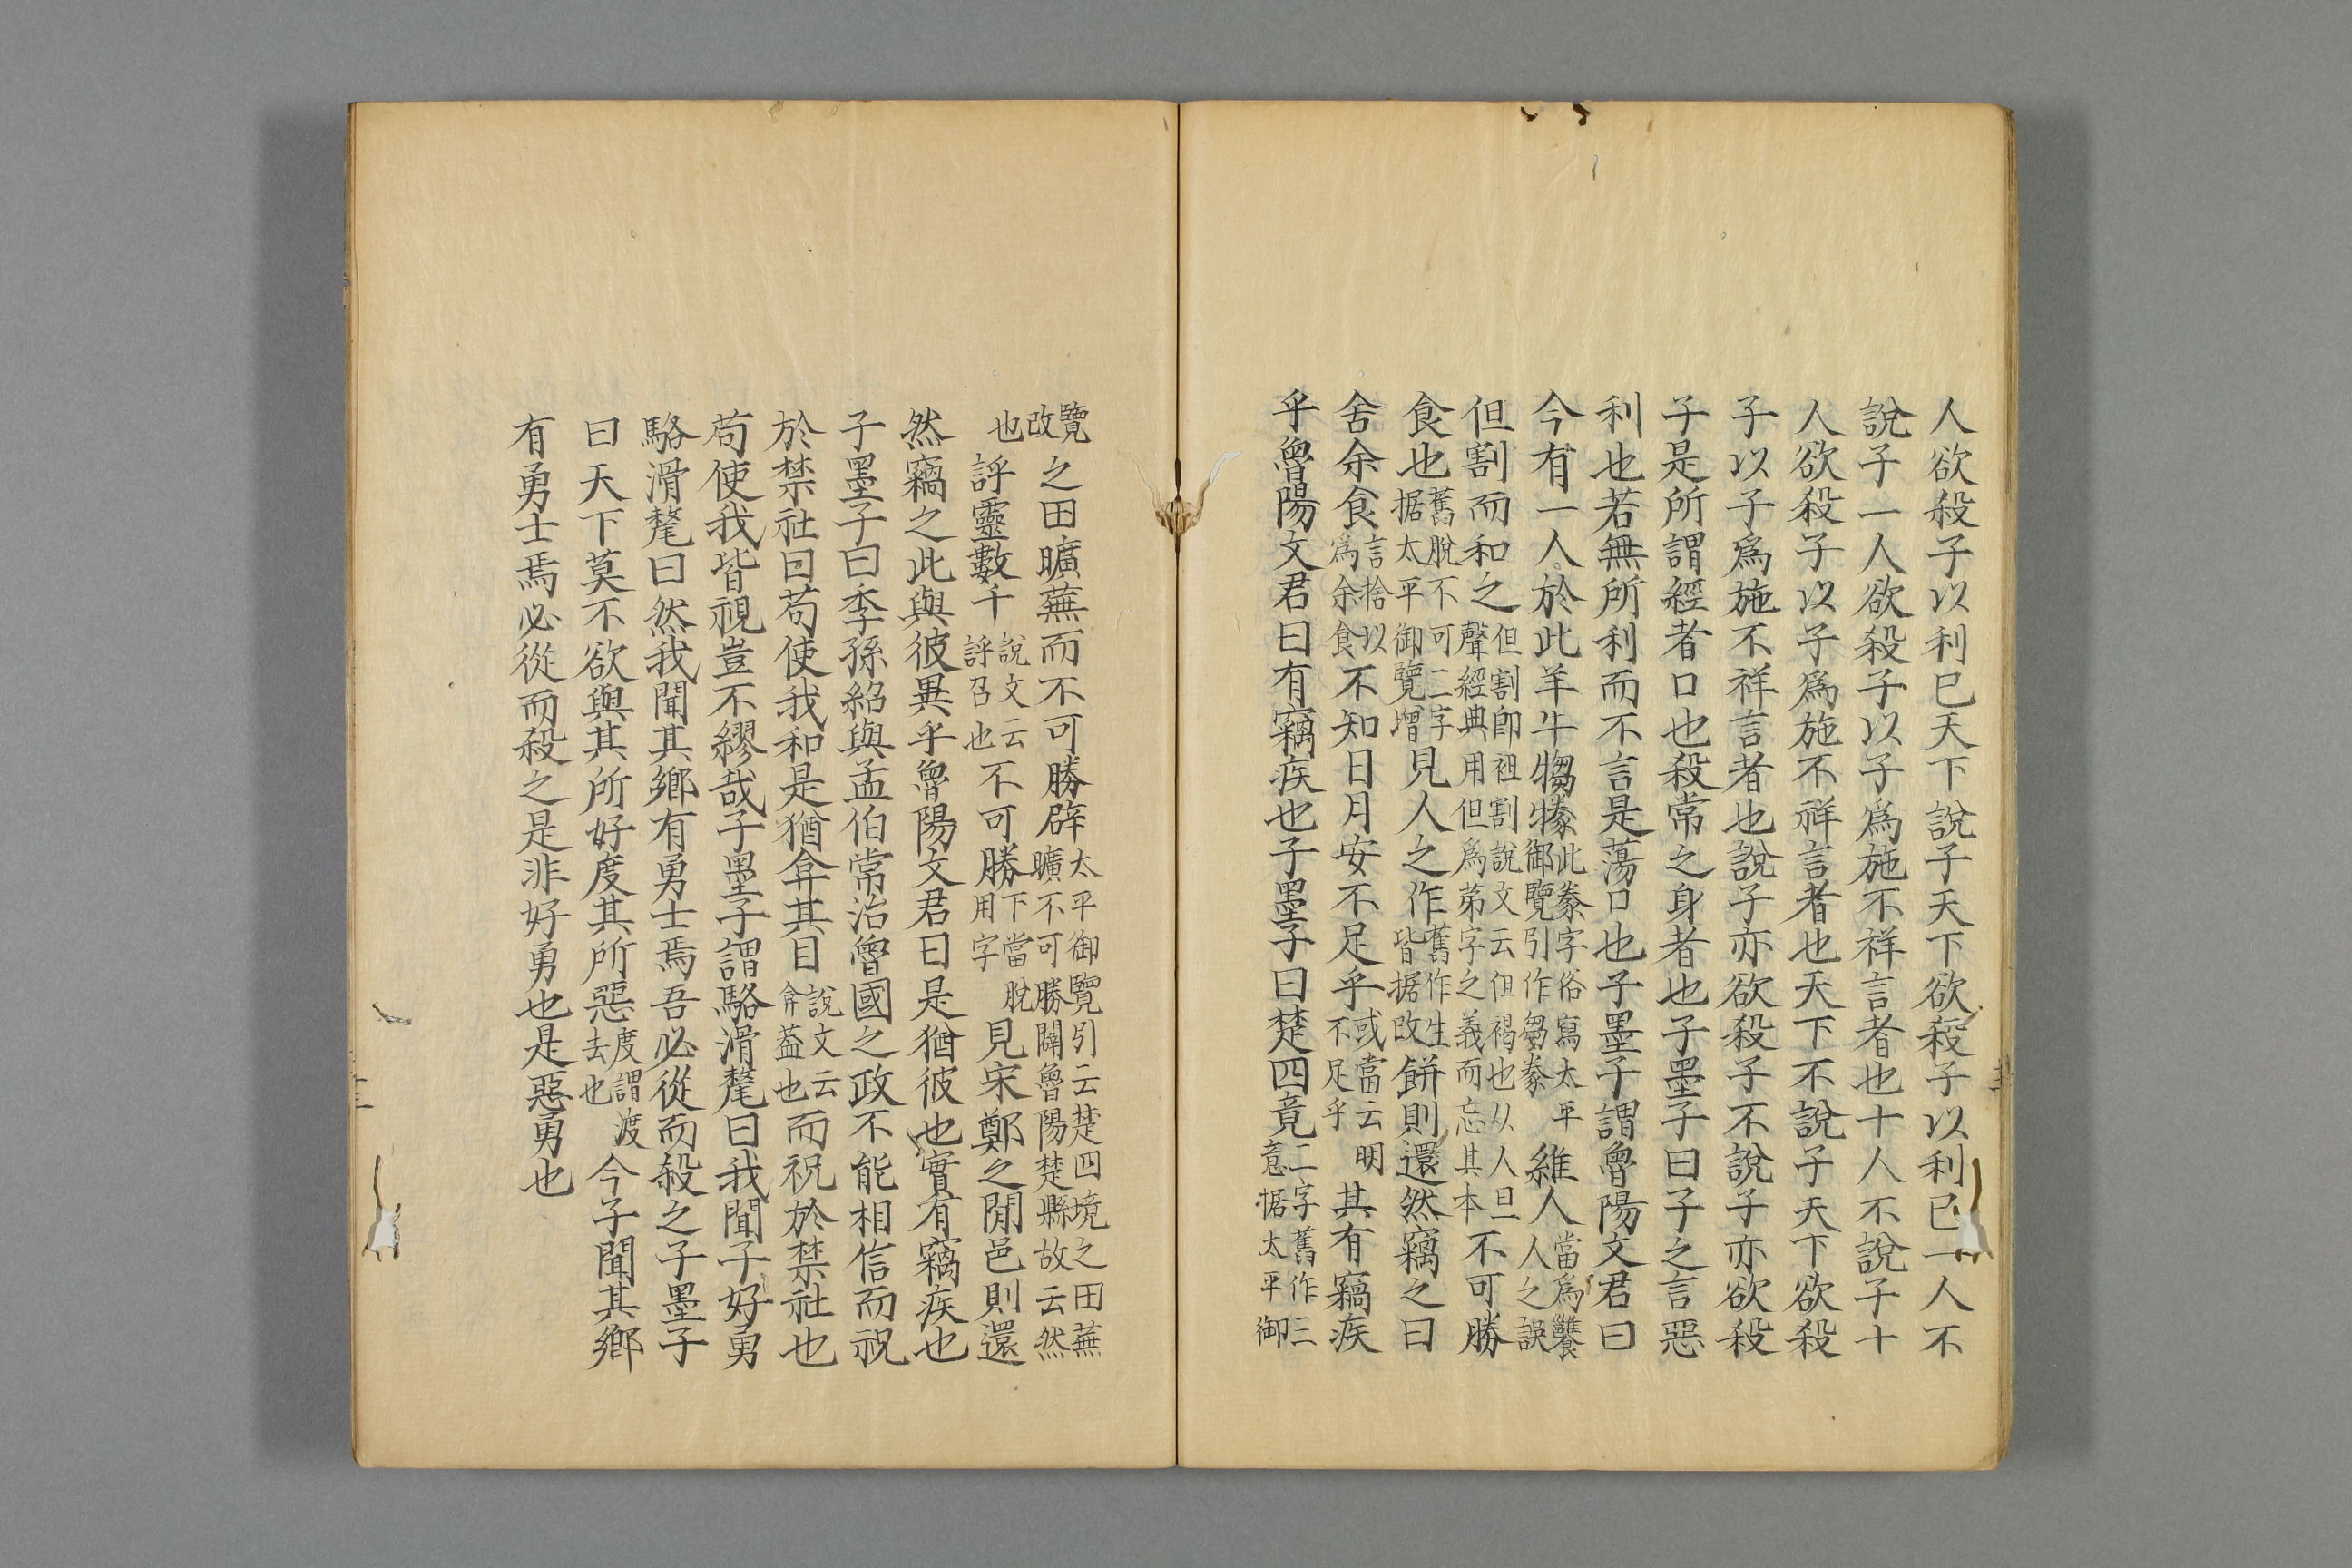 人欲殺子以利已天下說子天下欲殺子以利已一人不
說子一人欲殺子以子爲施不祥言者也十人不說子十
人欲殺子以子爲施不祥言者也天下不說子天下欲殺
子以子爲施不祥言者也說子亦欲殺子不說子亦欲殺
子是所謂經者口也殺常之身者也子墨子曰子之言惡
利也若無所利而不言是蕩口也子墨子謂魯陽文君曰
今有一人於此羊牛犓㹖此豢字俗寫太平御覽引作芻豢維人當爲饔人之誤
但割而和之但割卽袒割說文云但裼也从人旦聲經典用但爲苐字之義而忘其本不可勝
食也舊脫不可二字据太平御覽增見人之作舊作生皆据改餠則還然竊之曰
舍余食言捨以爲余食不知日月安不足乎或當云明不足乎其有竊疾
乎魯陽文君曰有竊疾也子墨子曰楚四竟二字舊作三意据太平御
覽改也之田曠蕪而不可勝辟太平御覽引云楚四境之田蕪曠不可勝闢魯陽楚縣故云然
評靈數千說文云評召也不可勝下當脫用字見宋鄭之閒邑則還
然竊之此與彼異乎魯陽文君曰是猶彼也實有竊疾也
子墨子曰季孫紹與孟伯常治魯國之政不能相信而祝
於禁社曰苟使我和是猶弇其目說文云弇葢也而祝於禁社也
苟使我皆視豈不繆哉子墨子謂駱滑氂曰我聞子好勇
駱滑氂曰然我聞其鄉有勇士焉吾必從而殺之子墨子
曰天下莫不欲與其所好度其所惡度謂渡去也今子聞其鄉
有勇士焉必從而殺之是非好勇也是惡勇也